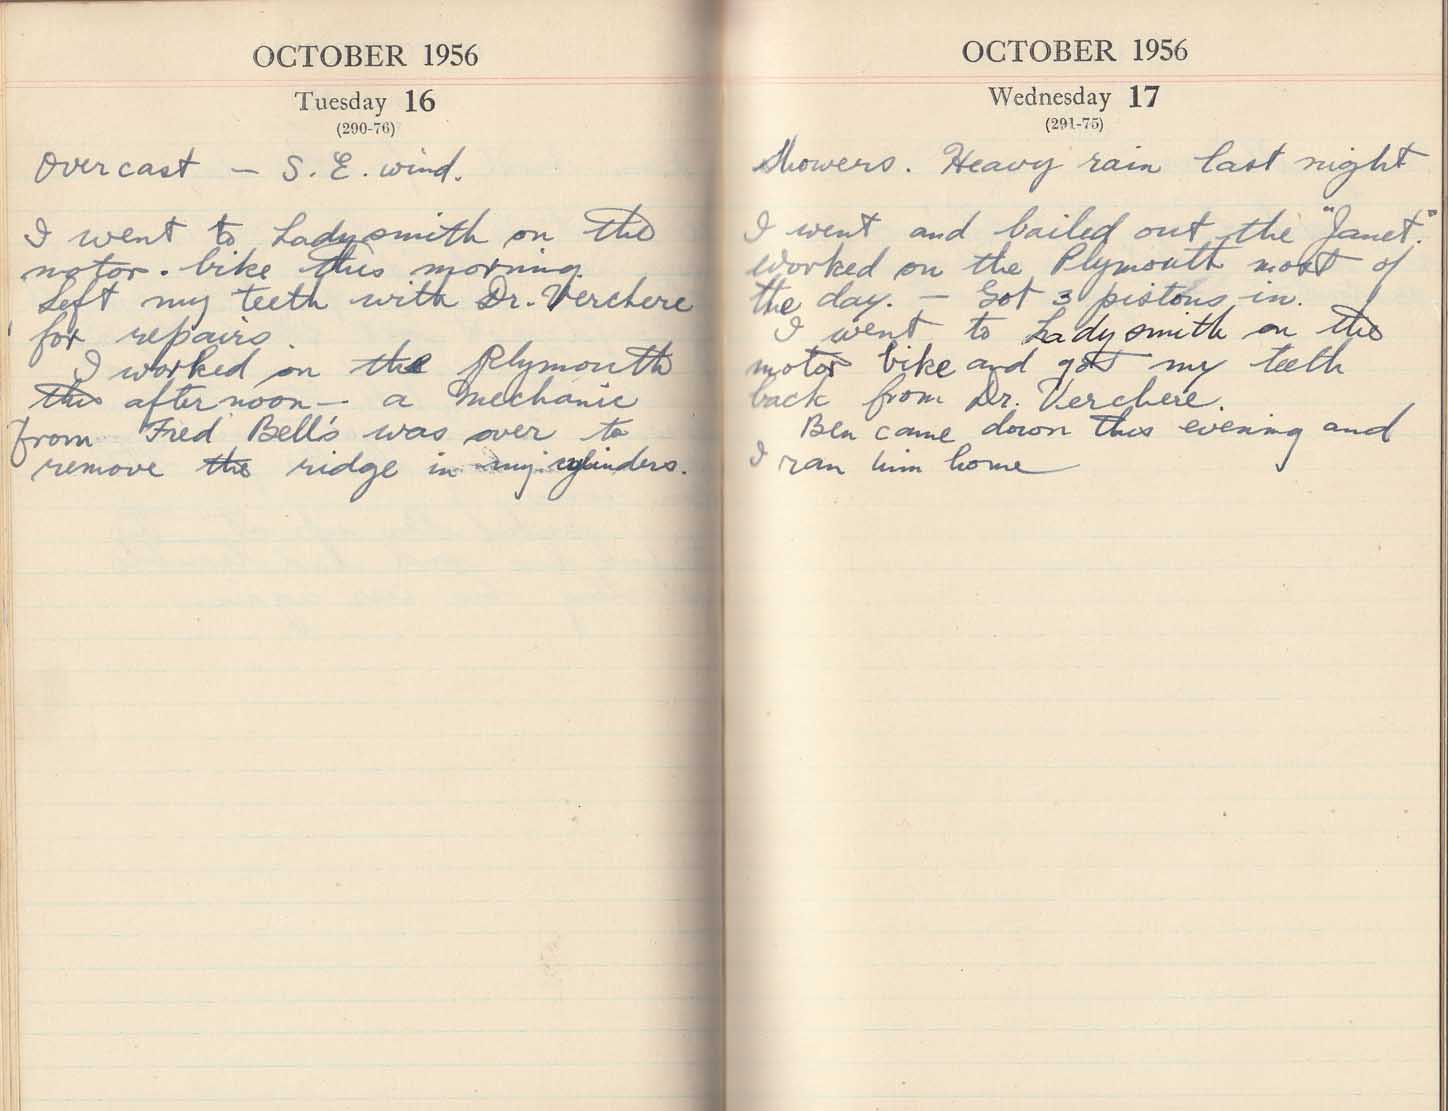 OCTOBER 1956
Tuesday 16
(290-76)
Overcast — S. E. wind.
I went to Ladysmith on the
motor-bike this morning.
Left my teeth with Dr. Verchere
for repairs.
I worked on the Plymouth
this afternoon — a Mechanic
from Fred Bell's was over to
remove the ridge in my cylinders.
OCTOBER 1956
Wednesday 17
(291-75)
Showers. Heavy rain last night
I went and bailed out the "Janet."
Worked on the Plymouth most of
the day. — Got 3 pistons in.
I went to Ladysmith on the
motor bike and got my teeth
back from Dr. Verchere.
Ben came down this evening and
I ran him home